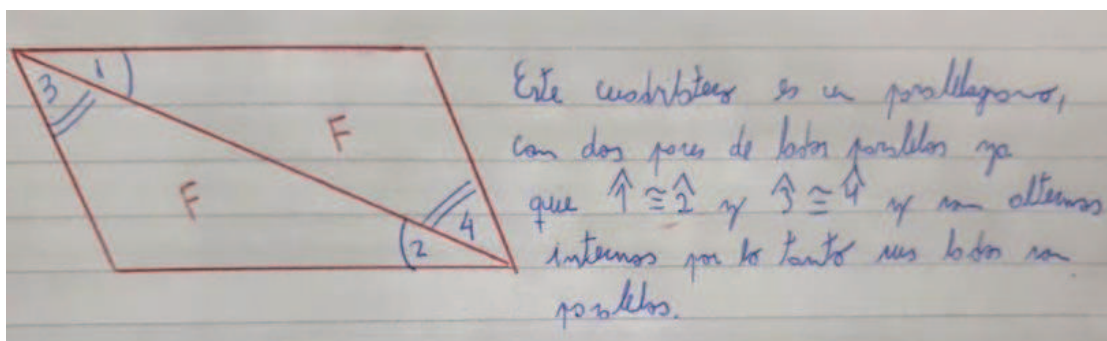 3 1
F
F
2 4
Este cuadrilátero es un paralelogramo,
con dos pares de lados paralelos ya
que 1̂ ≅ 2̂ y 3̂ ≅ 4̂ y son alternos
internos por lo tanto sus lados son
paralelos.